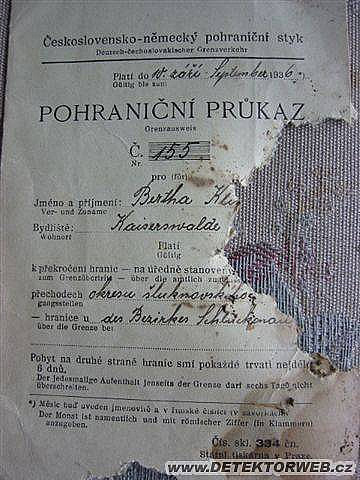 Československo-německý pohraniční styk
Deutsch-čechoslovakischer Grenzverkehr
Platí do 10. září - September 1936 *)
Gültig bis zum
POHRANIČNÍ PRŮKAZ
Grenzausweis
Č. 155
Nr
pro (für)
Jméno a příjmení: Bertha
Vor- und Zuname
Bydliště: Kaiserswalde
Wohnort
Platí
Gültig
k překročení hranic — na úředně stanovený
zum Grenzübertritt — über die amtlich
přechodech okresu šluknovského
gangsstellen
— hranice u des Bezirkes Schluckenau
über die Grenze bei
Pobyt na druhé straně hranic smí pokaždé trvati nejdéle
6 dnů.
Der jedesmalige Aufenthalt jenseits der Grenze darf sechs Tage nicht
überschreiten.
*) Měsíc buď uveden jmenovitě a v římské číslici (v závorkách)
Der Monat ist namentlich und mit römischer Ziffer (in Klammern)
anzugeben.
Čís. skl. 334 čn.
Státní tiskárna v Praze.
WWW.DETEKTORWEB.CZ